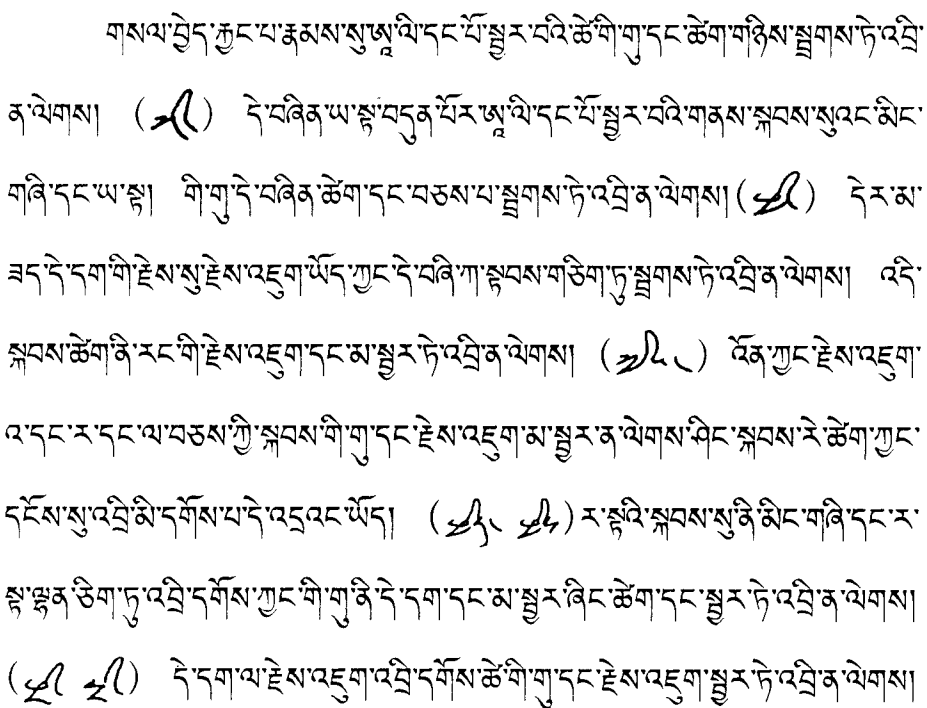 གསལ་བྱེད་རྐྱང་པ་རྣམས་སུ་ཨཱ་ལི་དང་པོ་སྦྱར་བའི་ཚེ་གི་གུ་དང་ཚེག་གཉིས་སྦྲགས་ཏེ་འབྲི་
ན་ལེགས། ( ) དེ་བཞིན་ཡ་སྟ་བདུན་པོར་ཨཱ་ལི་དང་པོ་སྦྱར་བའི་གནས་སྐབས་སུའང་མིང་
གཞི་དང་ཡ་སྟ། གི་གུ་དེ་བཞིན་ཚེག་དང་བཅས་པ་སྦྲགས་ཏེ་འབྲི་ན་ལེགས། ( ) དེར་མ་
ཟད་དེ་དག་གི་རྗེས་སུ་རྗེས་འཇུག་ཡོད་ཀྱང་དེ་བཞི་ཀ་སྟབས་གཅིག་ཏུ་སྦྲགས་ཏེ་འབྲི་ན་ལེགས། འདི་
སྐབས་ཚེག་ནི་རང་གི་རྗེས་འཇུག་དང་མ་སྦྱར་ཏེ་འབྲི་ན་ལེགས། ( ) འོན་ཀྱང་རྗེས་འཇུག་
འ་དང་ར་དང་ལ་བཅས་ཀྱི་སྐབས་གི་གུ་དང་རྗེས་འཇུག་མ་སྦྱར་ན་ལེགས་ཤིང་སྐབས་རེ་ཚེག་ཀྱང་
དངོས་སུ་འབྲི་མི་དགོས་པ་དེ་འདྲའང་ཡོད། ( ) ར་སྟའི་སྐབས་སུ་ནི་མིང་གཞི་དང་ར་
སྟ་ལྷན་ཅིག་ཏུ་འབྲི་དགོས་ཀྱང་གི་གུ་ནི་དེ་དག་དང་མ་སྦྱར་ཞིང་ཚེག་དང་སྦྱར་ཏེ་འབྲི་ན་ལེགས།
( ) དེ་དག་ལ་རྗེས་འཇུག་འབྲི་དགོས་ཚེ་གི་གུ་དང་རྗེས་འཇུག་སྦྱར་ཏེ་འབྲི་ན་ལེགས།